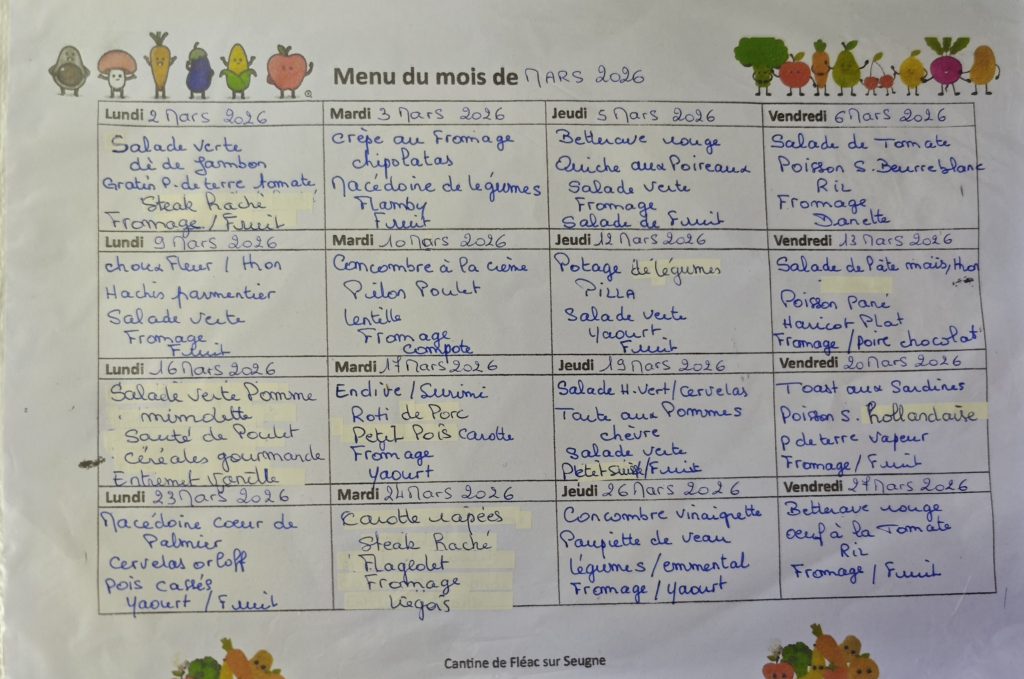 Menu du mois de MARS 2026
Lundi 2 Mars 2026
Salade verte
dè de Jambon
Gratin P. de terre tomate
Steak haché
Fromage / Fruit
Mardi 3 Mars 2026
crèpe au Fromage
chipolatas
Macédoine de légumes
Flamby
Fruit
Jeudi 5 Mars 2026
Betterave rouge
Quiche aux Poireaux
Salade verte
Fromage
Salade de Fruit
Vendredi 6 Mars 2026
Salade de Tomate
Poisson S. Beurre blanc
Riz
Fromage
Danette
Lundi 9 Mars 2026
choux Fleur / thon
Hachis parmentier
Salade verte
Fromage
Fruit
Mardi 10 Mars 2026
Concombre à la crème
Pilon Poulet
lentille
Fromage
Compote
Jeudi 12 Mars 2026
Potage de légumes
Pizza
Salade verte
Yaourt
Fruit
Vendredi 13 Mars 2026
Salade de Pâte maïs, thon
Poisson Pané
Haricot Plat
Fromage / poire chocolat
Lundi 16 Mars 2026
Salade verte Pomme
mimolette
Sauté de Poulet
céréales gourmande
Entremet Vanille
Mardi 17 Mars 2026
Endive / Surimi
Roti de Porc
Petit Pois Carotte
Fromage
Yaourt
Jeudi 19 Mars 2026
Salade H. vert / Cervelas
Tarte aux Pommes
chèvre
Salade verte
Petit suisse / Fruit
Vendredi 20 Mars 2026
Toast aux Sardines
Poisson S. hollandaise
p de terre vapeur
Fromage / Fruit
Lundi 23 Mars 2026
Macédoine coeur de
Palmier
Cervelas orloff
Pois cassés
Yaourt / Fruit
Mardi 24 Mars 2026
Carotte rapées
Steak haché
Flageolet
Fromage
liégois
Jeudi 26 Mars 2026
Concombre vinaigrette
Paupiette de veau
légumes / emmental
Fromage / Yaourt
Vendredi 27 Mars 2026
Betterave rouge
oeuf à la Tomate
Riz
Fromage / Fruit
Cantine de Fléac sur Seugne